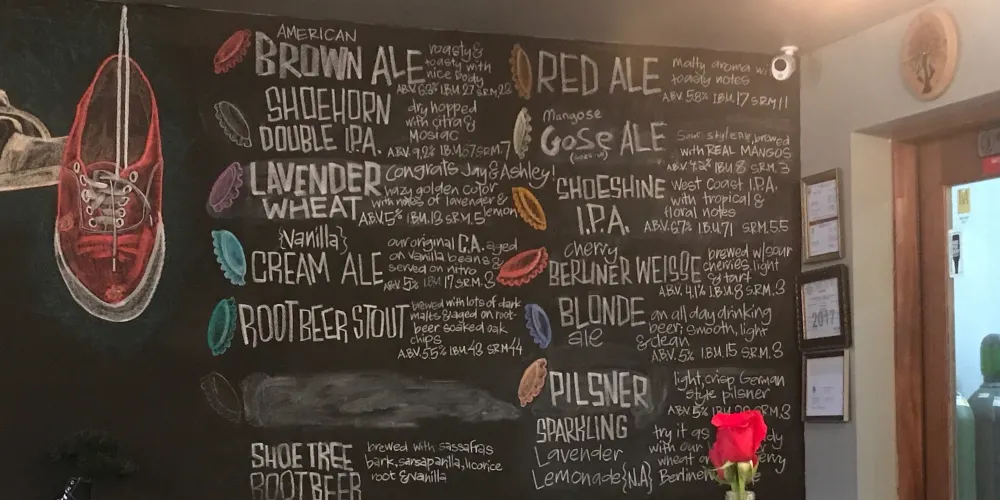 AMERICAN
BROWN ALE
roasty &
toasty with
nice body
A.B.V. 6.3% I.B.U. 27 S.R.M. 28
SHOEHORN
DOUBLE I.P.A.
dry hopped
with citra &
mosiac
A.B.V. 9.2% I.B.U. 67 S.R.M. 7
LAVENDER
WHEAT
Congrats Jay & Ashley!
hazy golden color
with notes of lavender &
lemon
A.B.V. 5% I.B.U. 13 S.R.M. 5
{Vanilla}
CREAM ALE
our original C.A. aged
on vanilla beans &
served on nitro
A.B.V. 5% I.B.U. 17 S.R.M. 3
ROOT BEER STOUT
brewed with lots of dark
malts & aged on root-
beer soaked oak
chips
A.B.V. 5.5% I.B.U. 43 S.R.M. 44
SHOE TREE
ROOTBEER
brewed with sassafras
bark, sarsaparilla, licorice
root & vanilla
RED ALE
malty aroma w/
toasty notes
A.B.V. 5.8% I.B.U. 17 S.R.M. 11
Mangose
GOSE ALE
(GOES-U)
Sour style ale brewed
with REAL MANGOS
A.B.V. 4.2% I.B.U. 8 S.R.M. 3
SHOESHINE
I.P.A.
West Coast I.P.A.
with tropical &
floral notes
A.B.V. 6.7% I.B.U. 71 S.R.M. 5.5
cherry
BERLINER WEISSE
brewed w/ sour
cherries, light
& tart
A.B.V. 4.1% I.B.U. 8 S.R.M. 3
BLONDE
ale
an all day drinking
beer; smooth, light
& clean
A.B.V. 5% I.B.U. 15 S.R.M. 3
PILSNER
light, crisp German
style pilsner
A.B.V. 5% S.R.M. 3
SPARKLING
Lavender
Lemonade {N.A.}
try it as
with our
wheat or
Berliner
2017